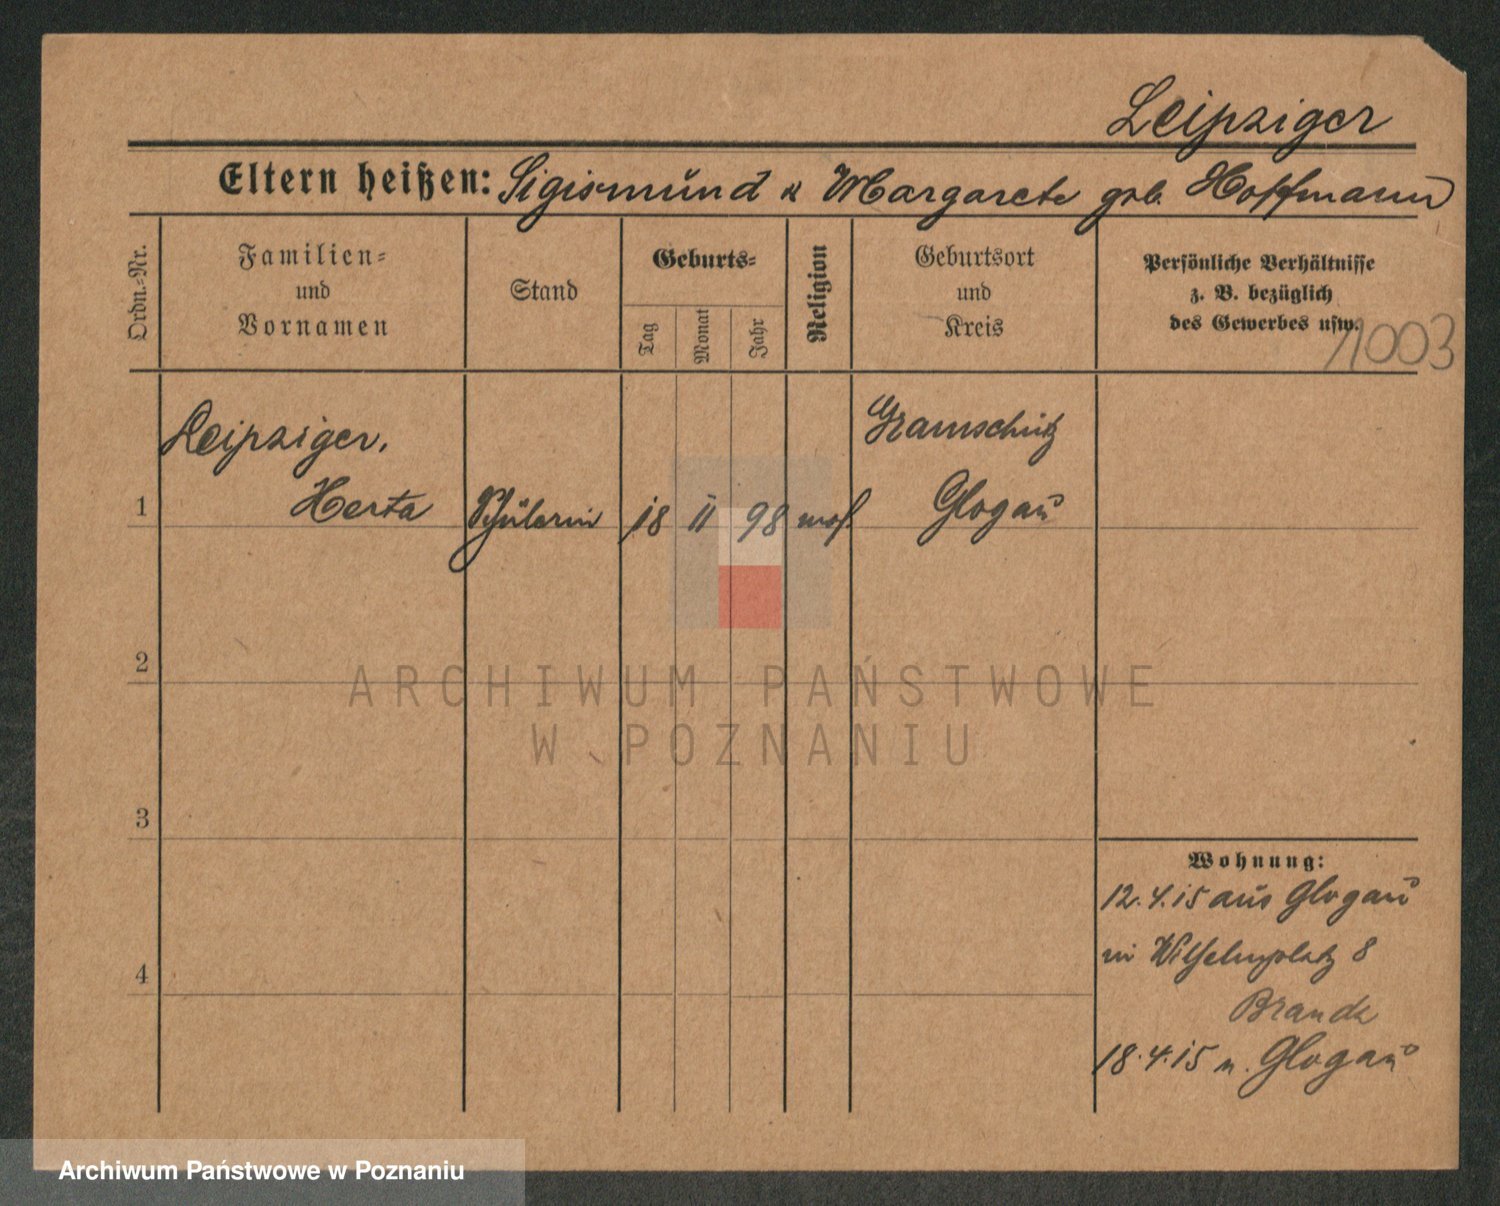 Leipziger
Eltern heißen: Sigismund u Margarete geb. Hoffmann
Ordn.-Nr.
Familien-
und
Vornamen
Stand
Geburts-
Tag
Monat
Jahr
Religion
Geburtsort
und
Kreis
Persönliche Verhältnisse
z. B. bezüglich
des Gewerbes usw.
1003
Leipziger, Gramschütz
1 Herta Schülerin 18 II 98 mos. Glogau
2
ARCHIWUM PAŃSTWOWE
W POZNANIU
3
Wohnung:
12.4.15 aus Glogau
in Wilhelmplatz 8
4
Brande
18.4.15 n. Glogau
Archiwum Państwowe w Poznaniu